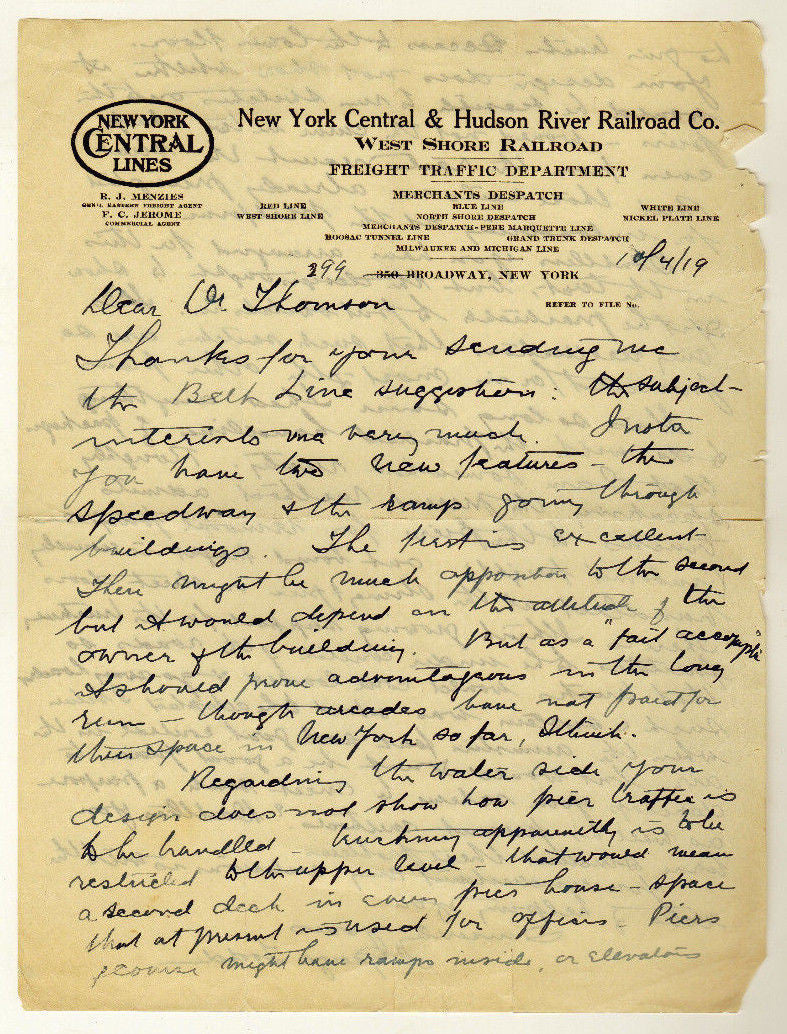 NEW YORK
CENTRAL
LINES
New York Central & Hudson River Railroad Co.
WEST SHORE RAILROAD
FREIGHT TRAFFIC DEPARTMENT
R. J. MENZIES
GEN'L EASTERN FREIGHT AGENT
F. C. JEROME
COMMERCIAL AGENT
MERCHANTS DESPATCH
RED LINE BLUE LINE WHITE LINE
WEST SHORE LINE NORTH SHORE DESPATCH NICKEL PLATE LINE
MERCHANTS DESPATCH-PERE MARQUETTE LINE
HOOSAC TUNNEL LINE GRAND TRUNK DESPATCH
MILWAUKEE AND MICHIGAN LINE
299 350 BROADWAY, NEW YORK 10/4/19
REFER TO FILE No.
Dear Mr Thomson
Thanks for your sending me
the Belt Line suggestions: the subject
interests me very much.
you have two new features - the
speedway & the ramp going through
buildings. The first is excellent
There might be much opposition to the second
but it would depend on the attitude of the
owner of the building. But as a "fait accompli"
it should prove advantageous in the long
run - though arcades have not paid for
their space in New York so far, I think.
Regarding the water side your
design does not show how pier traffic is
to be handled - trucking apparently is to be
restricted to the upper level - that would mean
a second deck in every pier house - space
that at present is used for offices. Piers
of course might have ramps inside, or elevators